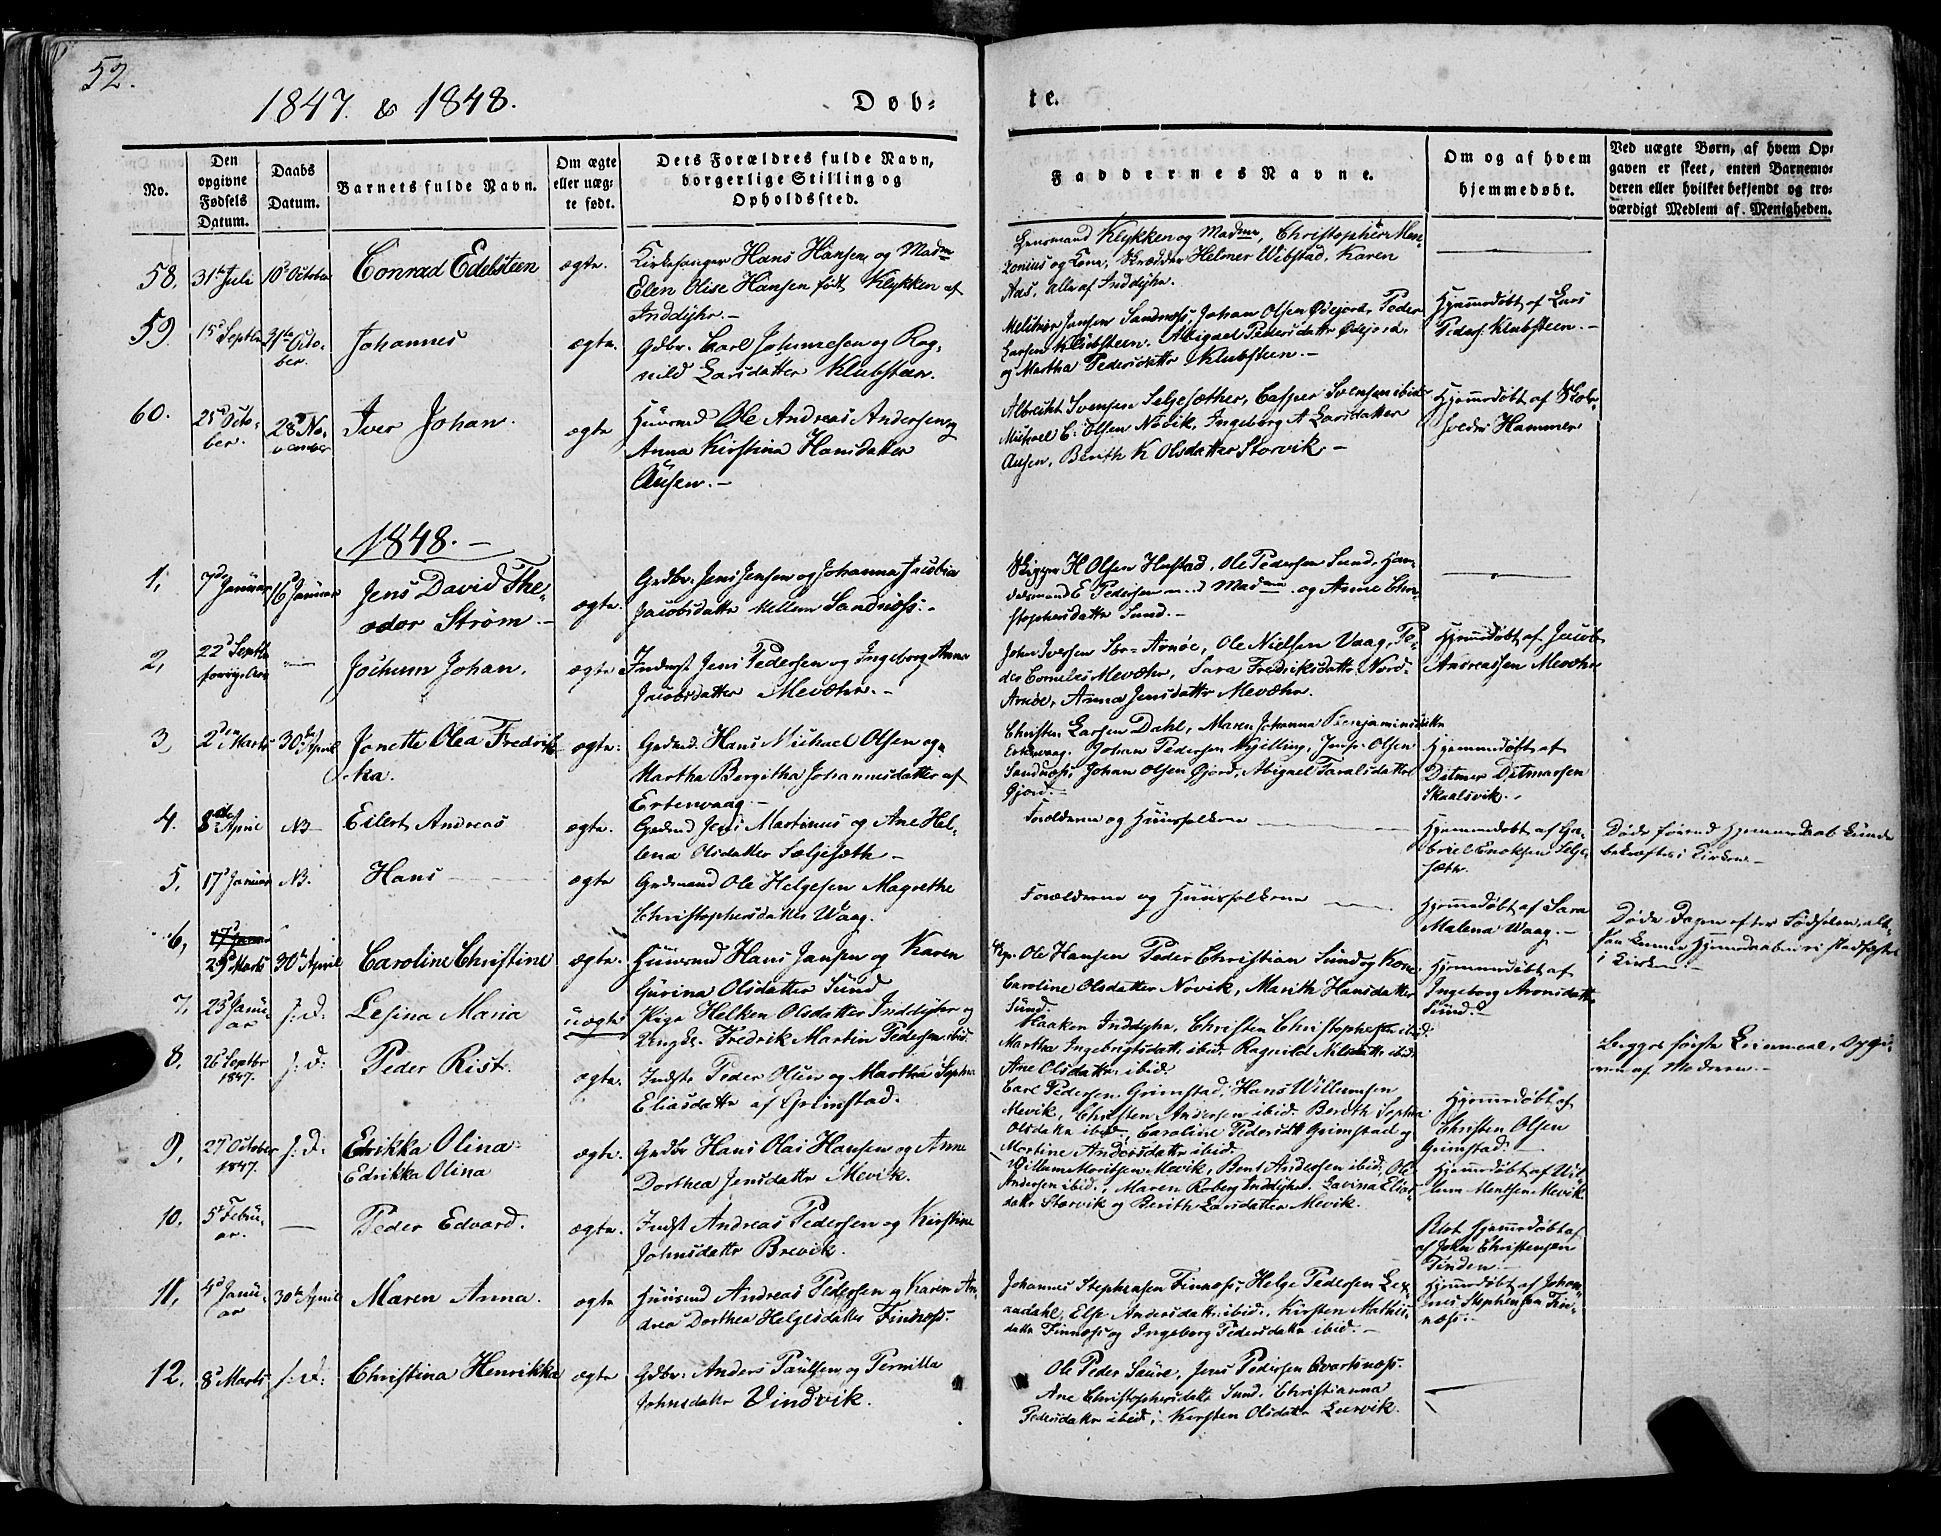 52.
1847. & 1848.
Døb-
te.
No.
Den
opgivne
Fødsels
Datum.
Daabs
Datum.
Barnets fulde Navn.
Om ægte
eller uæg-
te født.
Dets Forældres fulde Navn,
borgerlige Stilling og
Opholdssted.
Faddernes Navne.
Om og af hvem
hjemmedøbt.
Ved uægte Børn, af hvem Op-
gaven er skeet, enten Barnemo-
deren eller hvilket bekjendt og tro-
værdigt Medlem af Menigheden.
58. 31te Juli 10d October Conrad Edelsteen ægte. Kirkesanger Hans Hansen og Madme
Elen Olise Hansen født Klykken af
Inddyhr.-
Lensmand Klykken og Madme, Christopher
og Kone, Skrædder Helmer Wibstad, Karen
Aas, alle af Inddyhr.
59. 15d Septbr 31te Octo-
ber. Johannes ægte. Gdbr. Carl Johnnesen og Rag-
nild Larsdatter Klubsteen.
Jansen Sandnæss, Johan Olsen Øiejord, Peder
Larsen Klubsteen. Abigael Pedersdattr Øiejord,
og Martha Pedersdattr Klubsteen.-
Hjemmedøbt af Lars
Peders. Klubsteen.-
60. 25d Octo-
ber. 28d No-
vember Iver Johan. ægte Huusmd Ole Andreas Andersen og
Anna Kirstina Hansdatter
Ausen.-
Albrecht Svensen Seljesæther, Casper Svensen ibid.
Michael C. Olsen Novik, Ingeborg A Larsdatter
Ausen, Berith K Olsdatter Storvik.-
Hjemmedøbt af
Hammer
1848.-
1, 7de Januar 16 Januar Jens David The-
odor Strøm.- ægte. Grdbr. Jens Jensen og Johanna Jacobia
Jacobsdattr Mellem Sandnæss.-
Skipper H Olsen Hustad, Ole Pedersen Sund, Han-
delsmand E Pedersen med Madme og Anne Chri-
stophersdattr Sund.-
2, 22d Septbr
forrige Aar Jochum Johan. ægte Inderst Jens Pedersen og Ingeborg Anna
Jacobsdatter Mevæhr.-
John Iversen Sør-Arnøe, Ole Nielsen Vaag, Pe-
der Cornelis Mevæhr, Sara Fredriksdattr Nord-
Arnøe, Anna Jensdattr Mevæhr.
Hjemmedøbt af Jacob
Andreassen Mevæhr
3, 2den Marts 30te April Jonette Olea Fredrik-
ka. ægte. Grdmd. Hans Michael Olsen og
Martha Bergitha Johannesdatter af
Ertenvaag.-
Christen Larsen Dahl, Maren Johanna Benjaminsdattr
Ertenvaag. Johan Pedersen Kjelling, Jens Olsen
Sandnæss, Johan Olsen Gjord, Abigael Taralsdatter
Gjord.-
Hjemmedøbt af
Ditmer Ditmarsen
Skaalsvik.
4. 8de April NB Eilert Andreas ægte. Grdmd Jens Martinus og Ane Hel-
lena Olsdatter Sæljesæth-
Forældrene og Huusfolkene
Hjemmedøbt af Ga-
briel Enoksen Selje-
sætr.
Døde førend Hjemmedaab kunde
bekræftes i Kirken.-
5. 17d Januar NB. Hans ægte Grdmand Ole Helgesen Magrethe
Christophersdatter Waag.
Forældrene og Huusfolkene
Hjemmedøbt af Sara
Malena Waag.-
Døde Dagen efter Fødselen, alt-
saa kunne Hjemmedaaben ei stadfæstes
i Kirken.-
6, 17d Januar
29d Marts 30te April Caroline Christine ægte. Huusmd Hans Jansen og Karen
Gurina Olsdatter Sund
Ole Hansen Peder Christian Sund og Kone
Caroline Olsdatter Novik, Marith Hansdatter
Sund.
Hjemmedøbt af
Ingeborg Aronsdattr
Sund.
7, 23d Janu-
ar f. D. Lesina Maria uægte Pige Helken Olsdatter Inddyhr og
Ungk. Fredrik Martin Pedersen ibid.
Haaken Inddyhr, Christen Christophersen ibid.
Martha Ingebrigtsdattr ibid. Ragnild Nilsdattr ibid.
Ane Olsdatter ibid.
Begges første Leiermaal, Opgi-
ven af Moderen.-
8, 26 Septbr
1847. f. D. Peder Rist. ægte. Indste Peder Olsen og Martha Sophia
Eliasdattr af Grimstad.
Carl Pedersen Grimstad, Hans Willumsen
Mevik, Christen Andersen ibid. Berith Sophia
Olsdattr ibid, Caroline Pedersdtt Grimstad og
Martine Andersdattr ibid.
Hjemmedøbt af
Christen Olsen
Grimstad.
9, 27 October
1847. f. D. Edrikka Olina
Edrikka Olina ægte. Grdbr Hans Olai Hansen og Anne
Dorthea Jensdattr Mevik.
Willum Moritsen Mevik, Bent Andersen ibid, Ole
Andersen ibid., Maren Roberg Inddyhr. Lavina Elias-
dattr Storvik og Berith Larsdatter Mevik.
Hjemmedøbt af Wil-
lum Mentsen Mevik
10. 5te Febru-
ar. - Peder Edvard. ægte. Indst Andreas Pedersen og Kirstine
Johnsdattr Brevik.
Blot Hjemmedøbt af
af John Christensen
Tinden.-
11, 4d Janu-
ar 30te April Maren Anna. ægte Huusmd Andreas Pedersen og Karen An-
drea Dorthea Helgesdatter Finnæss.
Johannes Stephensen Finnæss, Helge Pedersen
Else Andersdattr ibid., Kirsten Mathis-
dattr Finnæss og Ingeborg Pedersdattr ibid.-
Hjemmedøbt af Johan-
nes Stephensen Fin-
næss.-
12, 8d Marts f. D. Christina Henrikka ægte Gdbr. Anders Paulsen og Pernilla
Johnsdattr Vindvik.
Ole Peder Saure, Jens Pedersen Qvartsnæss.
Ane Christophersdattr Sund, Christianna
Pedersdattr ibid; Kirsten Olsdattr Leervik.